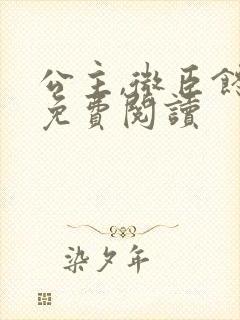 公主,微臣
免費閱讀
染夕年